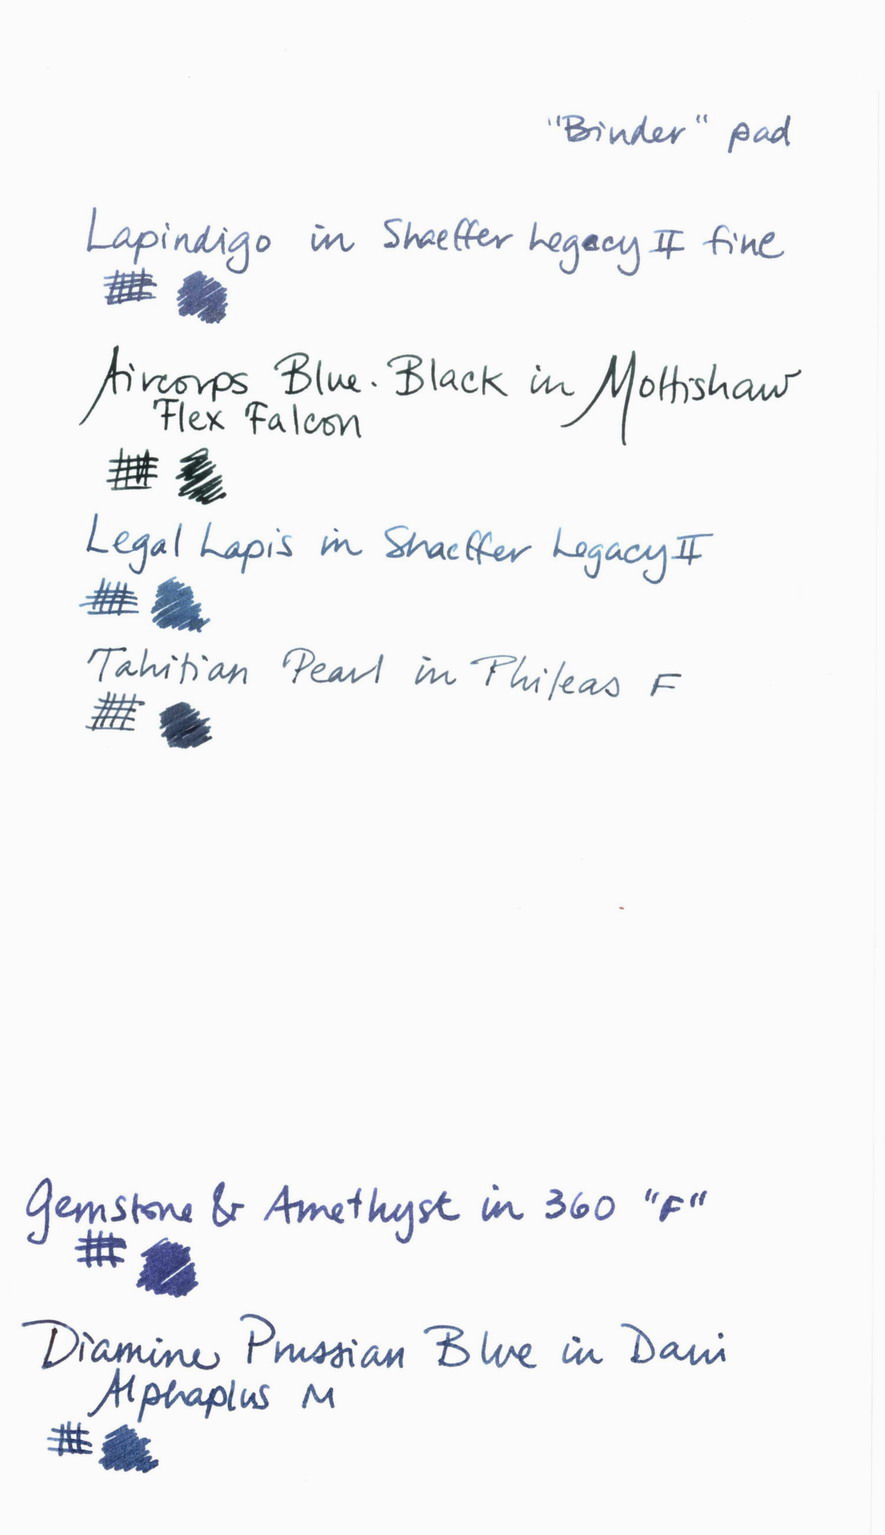 "Binder" pad
Lapindigo in Shaeffer Legacy II fine
Aircorps Blue-Black in Mottishaw
Flex Falcon
Legal Lapis in Shaeffer Legacy II
Tahitian Pearl in Phileas F
Gemstone & Amethyst in 360 "F"
Diamine Prussian Blue in Dani
Alphaplus M